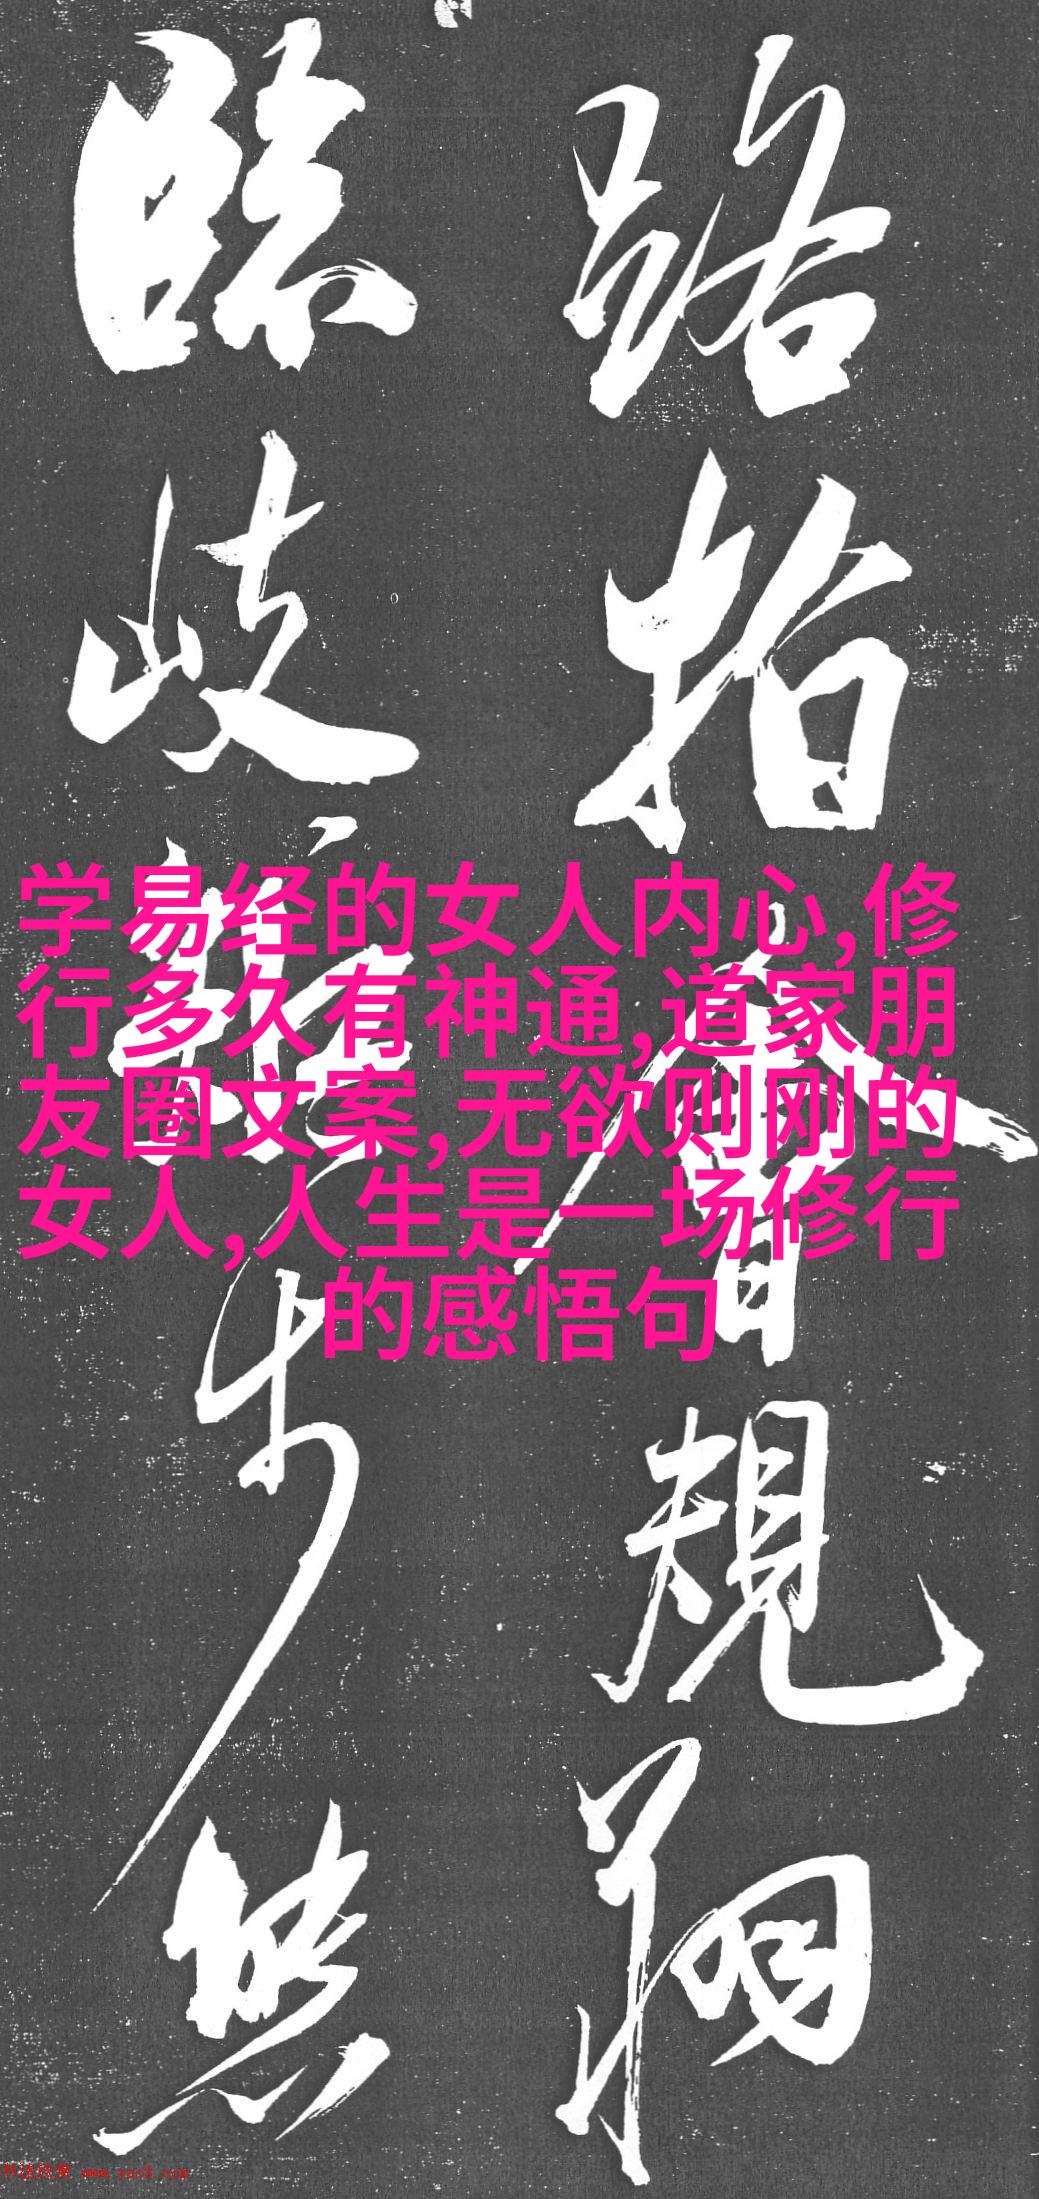 路指規翔
臨歧步
学易经的女人内心,修
行多久有神通,道家朋
友圈文案,无欲则刚的
女人,人生是一场修行
的感悟句
书法欣赏 www.yac8.com